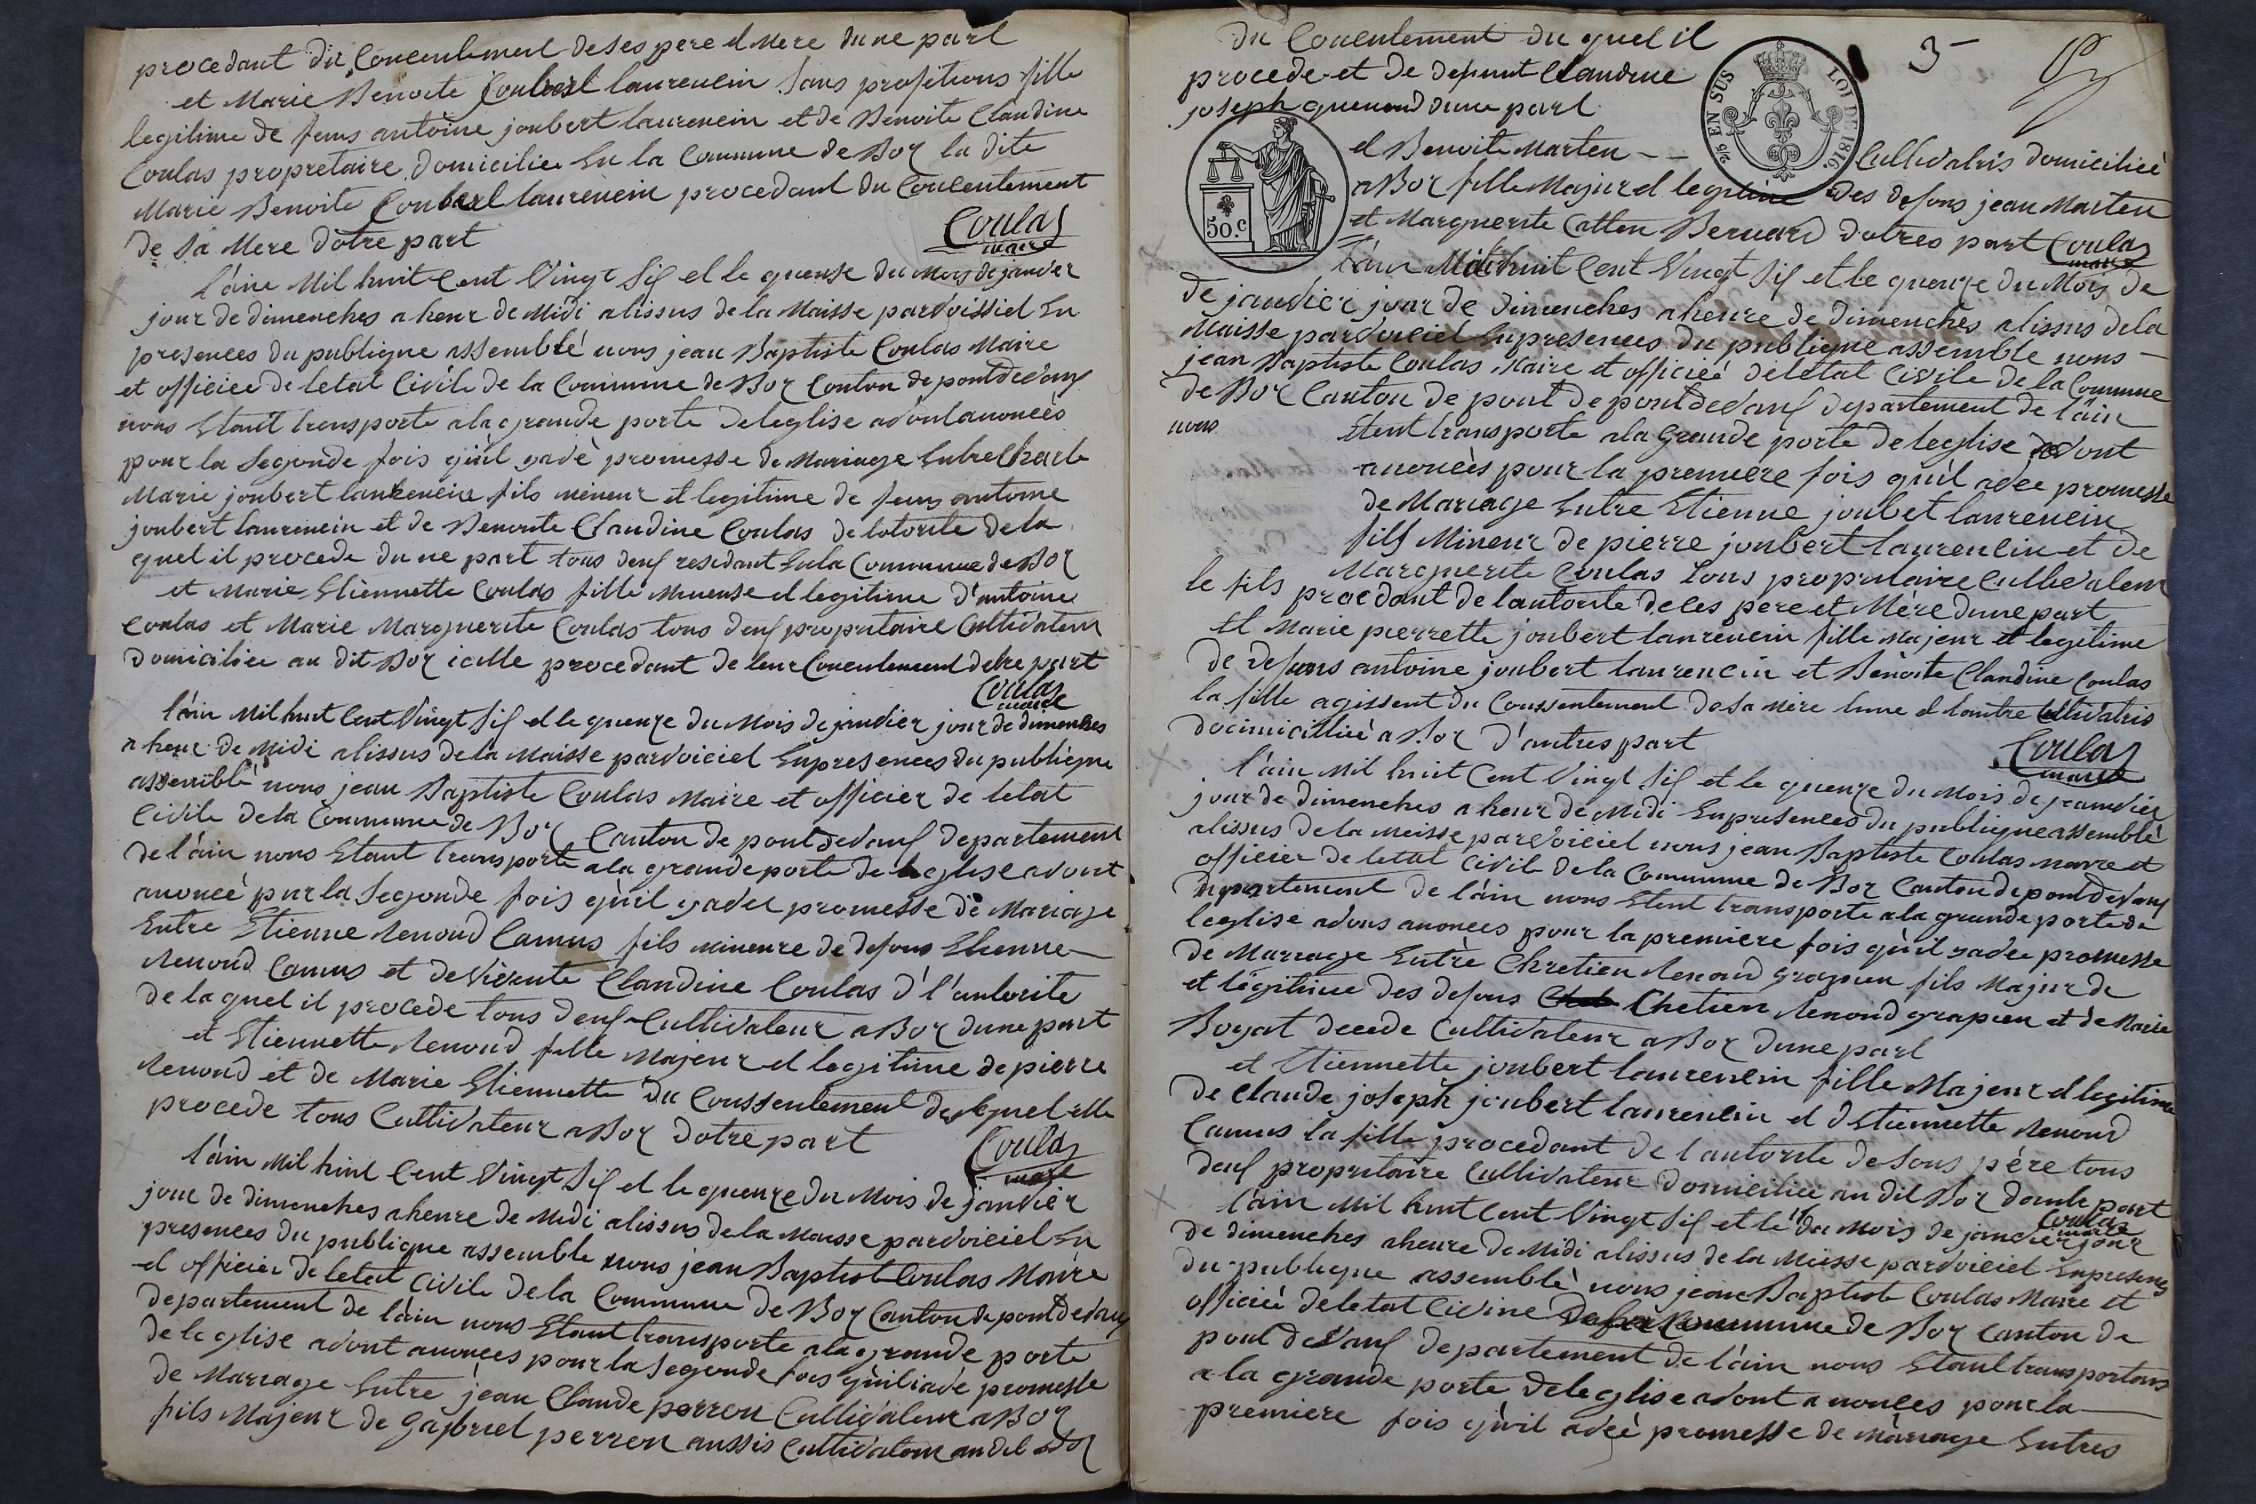 procedant du Concentement de ses pere et Mere du ne part
et Marie Benoite Joubert laurencin sans profitions fille
legitime de feus antoine joubert laurencin et de Benoite Claudine
Coulas propretaire domicilie En la Commune de Boz la dite
Marie Benoite Joubert laurencin procedant du Concentement
de sa Mere dotre part
Coulas
maire
l'àin Mil huit Cent Vingt Sif et le quense du Mois de janvier
jour de dimenches a heur de Midi alissus de la Maisse parvoissiel En
presences du publique assemblé nous jean Baptiste Coulas Maire
et officiee de letat Civile de la Commune de Boz Conton de pontdevauf
nous Etant transporte ala grande porte deleglise avont anoncées
pour la Segonde fois qùil yadè promesse de Mariage Entre Charle
Marie joubert laurencin fils mineur et legitime de feus antoine
joubert laurencin et de Benoite Claudine Coulas de lotorite de la
quel il procede du ne part tous deuf residant En la Commune de Boz
et Marie Etiennette Coulas fille Mineuse et legitime d'antoine
Coulas et Marie Marguerite Coulas tous deuf propritaire Cultivateur
domiciliee au dit Boz icelle procedant de leur Concentement detre part
Coulas
maire
l'àin Mil huit Cent Vingt Sif et le quenze du Mois de janvier jour de dimenches
a heur de Midi alissus de la Maisse parvoiciel Enpresences du publique
assemblé nous jean Baptiste Coulas Maire et officier de letat
Civile de la Commune de Boz Canton de pontdevauf departement
de l'àin nous Etant transporte ala grande porte de leglise avont
anoncé pur la Segonde fois qùil yadee promesse de Mariage
Entre Etienne Renoud Camus fils mineure de defous Etienne
Renoud Camus et de Vivente Claudine Coulas d'l'autorite
de la quel il procede tous deuf Cultivateur a Boz dune part
et Etiennette Renoud fille Majeur et legitime de pierre
Renoud et de Marie Etiennette du Coussentement deslequel elle
procede tous Cultivateur a Boz dotre part
Coulas
maire
l'àin Mil huit Cent Vingt Sif et le quenze du Mois de janvier
jour de dimenches aheure de Midi alissus de la Maisse parvoiciel En
presences du publique assemble nous jean Baptist Coulas Maire
et officier de letat Civile de la Commune de Boz Canton de pontdevauf
departement de l'àin nous Etant transporte ala grande porte
de leglise avont anoncees pour la Segonde fois qùiliade promesse
de Marrage Entre jean Claude perren Cultivateur a Boz
fils Majeur de Gabriel perren aussis Cultivateur au dit Boz
3
du Concentement du quel il
procede et de defunt Claudine
joseph guenoud dune part
EN SUS
LOI DE 1816.
50.c
et Benoite Marten - - Cultivatris domiciliée
a Boz fille Majur et legitime des defous jean Marten
et Marguerite Catton Bernard dotres part
Coulas
maire
l'àin Mil huit Cent Vingt Sif et le quenze du Mois de
de janvier jour de dimenches a heure de dimenches alissus dela
Maisse parvoiciel Enpresences du publique assemble nous
jean Baptiste Coulas Maire et officieé deletat Civile de la Commune
de Boz Canton de pont de pontdevauf departement de l'àin
nous Etent transporte ala Grande porte de leglise avont
anoncèes pour la premiere fois qùil adee promesse
de Mariage Entre Etienne joubet laurencin
fils Mineur de pierre joubert laurencin et de
Marguerite Coulas tous propritaire Cultivateur
le fils procdant de lautorite de ces pere et Mère dune part
Et Marie pierrette joubert laurencin fille Majeur et legitime
de defuns antoine joubert laurencin et Benoite Claudine Coulas
la fille agissent du Coussentement de sa mère lune et lautre Cultivatris
docimicilliée a Boz d'autres part
Coulas
maire
l'àin Mil huit Cent Vingt Sif et le quenze du Mois de jeanvier
jour de dimenches a heur de Midi Enpresences du publique assemblé
alissus de la meisse parvoiciel nous jean Baptiste Coulas maire et
officier de letat Civil de la Commune de Boz Canton de pontdevauf
departement de l'àin nous Etent transporte ala grande porte de
leglise avons anonces pour la premiere fois qùil yadee promesse
de Marrage Entrè Chretien Renoud grapien fils Majur de
et légitime des defous Chetien Renoud grapien et de Marie
Boyat decede Cultivateur a Boz dune part
et Etiennette joubert laurencin fille Majeur et legitime
de Claude joseph joubert laurencin et d Etiennette Renoud
Camus la fille procedant de l autorite de sous père tous
deuf propritaire Cultivateur domiciliee au dit Boz dautre part
Coulas
maire
l'àin Mil huit Cent Vingt Sif et le du Mois de janvier jour
de dimenches aheure de Midi alissus de la Meisse parvoiciel Enpresences
du publique assemblé nous jean Baptist Coulas Maire et
officiée deletat Civine de la Commune de Boz Canton de
pont de Vauf departement de l'àin nous Etant transportons
a la grande porte deleglise avont anonces pour la
premiere fois qùil adeé promesse de màriage Entres